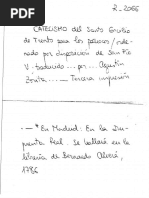 2-2066
CATECISMO del Santo Concilio
de Trento para los párrocos / orde-
nado por disposición de San Pío
V. traducido ... por ... Agustín
Zorita ... — Tercera impresión
— . — En Madrid: En la Im-
prenta Real. Se hallará en la
librería de Bernardo Alberá,
1786